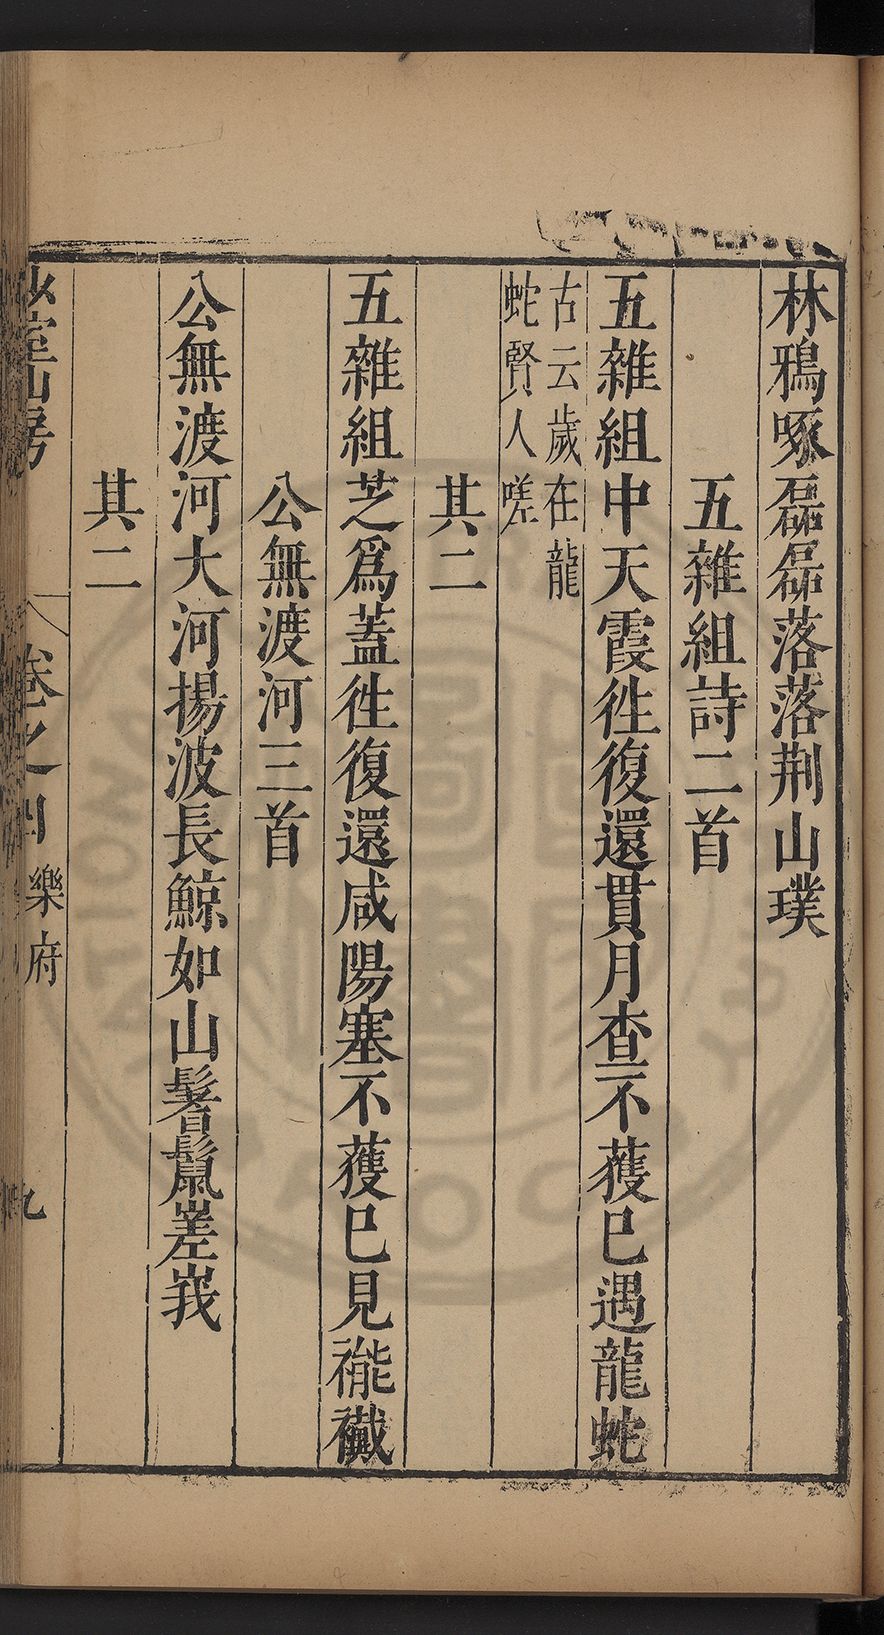 林鴉啄磊磊落落荆山璞
五雜組詩二首
五雜組中天霞徃復還貫月查不獲已遇龍蛇
古云歲在龍
蛇賢人嗟
其二
五雜組芝爲蓋徃復還咸陽塞不獲已見褦襶
公無渡河三首
公無渡河大河揚波長鯨如山鬐鬣嵳峩
其二
室山房
卷之四
樂府
九